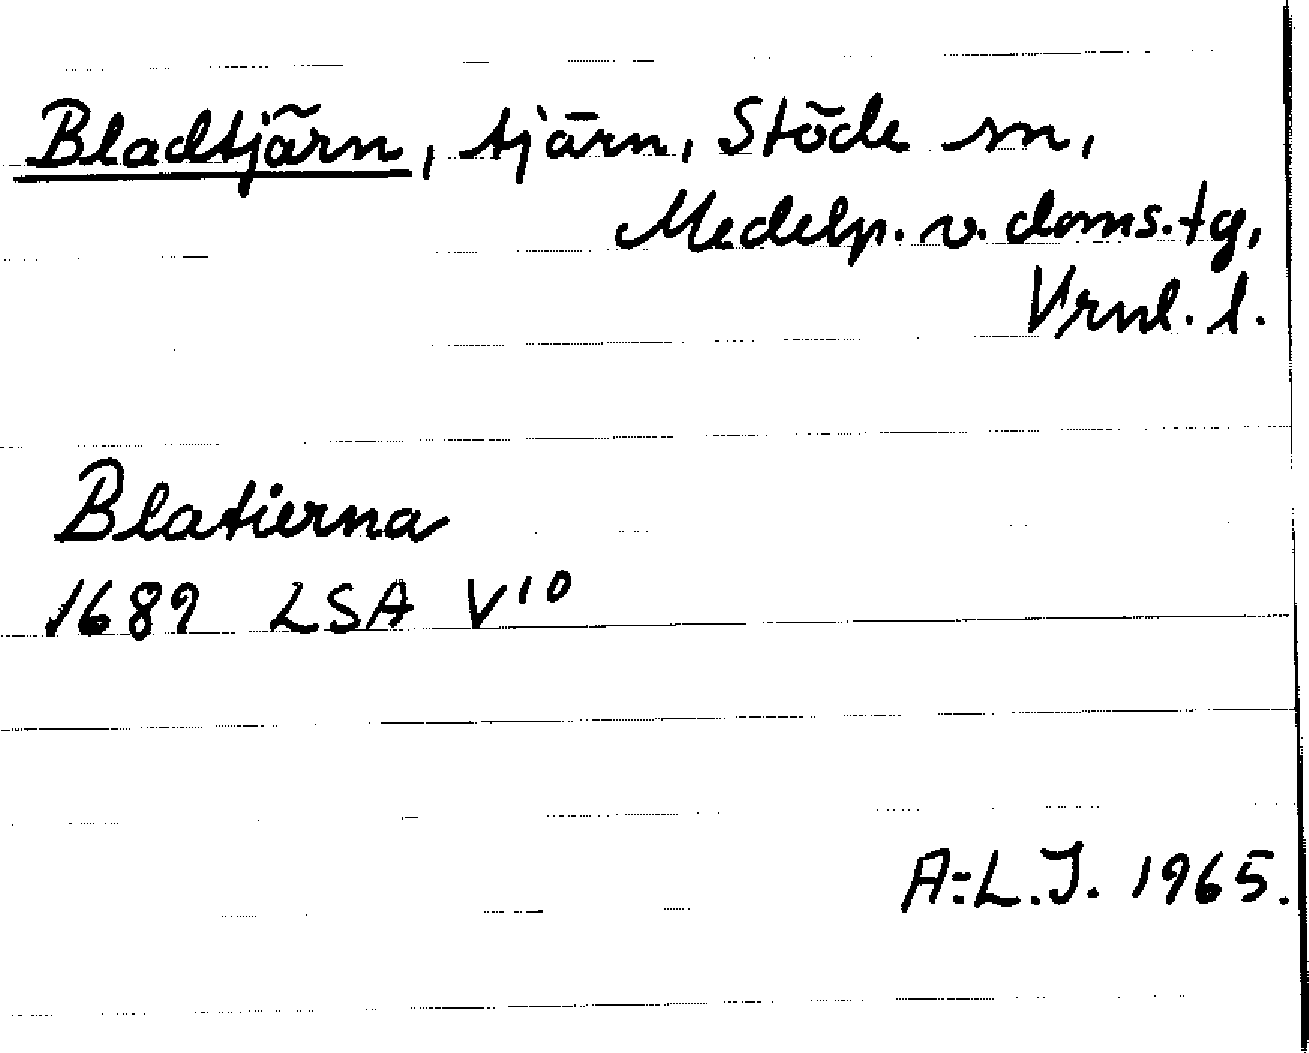 Bladtjärn, tjärn, Stöde sn,
Medelp. v. doms.tg,
Vrnl. l.
Blatierna
1689 LSA V10
A-L.J. 1965.